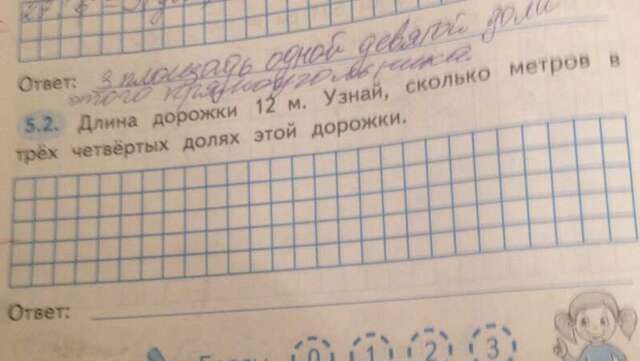 Ответ: 3 площадь одной девятой доли
этого прямоугольника.
5.2. Длина дорожки 12 м. Узнай, сколько метров в
трёх четвёртых долях этой дорожки.
Ответ:
0 1 2 3